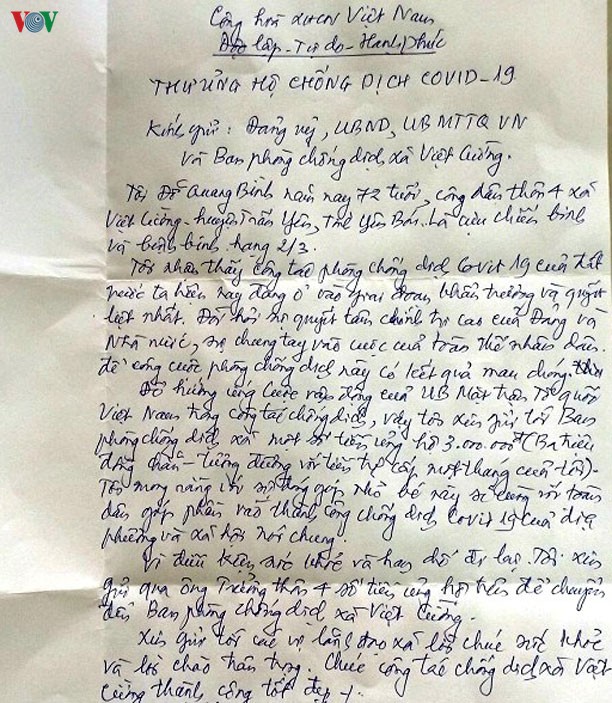 VOV
Cộng hoà XHCN Việt Nam
Độc lập - Tự do - Hạnh phúc
THƯ ỦNG HỘ CHỐNG DỊCH COVID-19
Kính gửi: Đảng uỷ, UBND, UBMTTQ VN
và Ban phòng chống dịch xã Việt Cường.
Tôi Đỗ Quang Bình năm nay 72 tuổi, công dân thôn 4 xã
Việt Cường - huyện Trấn Yên, Tỉnh Yên Bái. Là cựu chiến binh
và bệnh binh hạng 2/3.
Tôi nhận thấy công tác phòng chống dịch Covit 19 của đất
nước ta hiện nay đang ở vào giai đoạn khẩn trương và quyết
liệt nhất. Đòi hỏi sự quyết tâm chính trị cao của Đảng và
Nhà nước, sự chung tay vào cuộc của toàn thể nhân dân.
để công cuộc phòng chống dịch này có kết quả mau chóng.
Để hưởng ứng cuộc vận động của UB Mặt trận Tổ quốc
Việt Nam trong công tác chống dịch, vậy tôi xin gửi tới Ban
phòng chống dịch xã một số tiền ủng hộ 3.000.000đ (Ba triệu
đồng chẵn - tương đương với tiền trợ cấp một tháng của tôi).
Tôi mong rằng với sự đóng góp nhỏ bé này sẽ cùng với toàn
dân góp phần vào thành công chống dịch Covit 19 của địa
phương và xã hội nói chung.
Vì điều kiện sức khoẻ và hạn chế đi lại. Tôi xin
gửi qua ông Trưởng thôn 4 số tiền ủng hộ trên để chuyển
đến Ban phòng chống dịch xã Việt Cường.
Xin gửi tới các vị lãnh đạo xã lời chúc sức khoẻ
và lời chào trân trọng. Chúc công tác chống dịch xã Việt
Cường thành công tốt đẹp